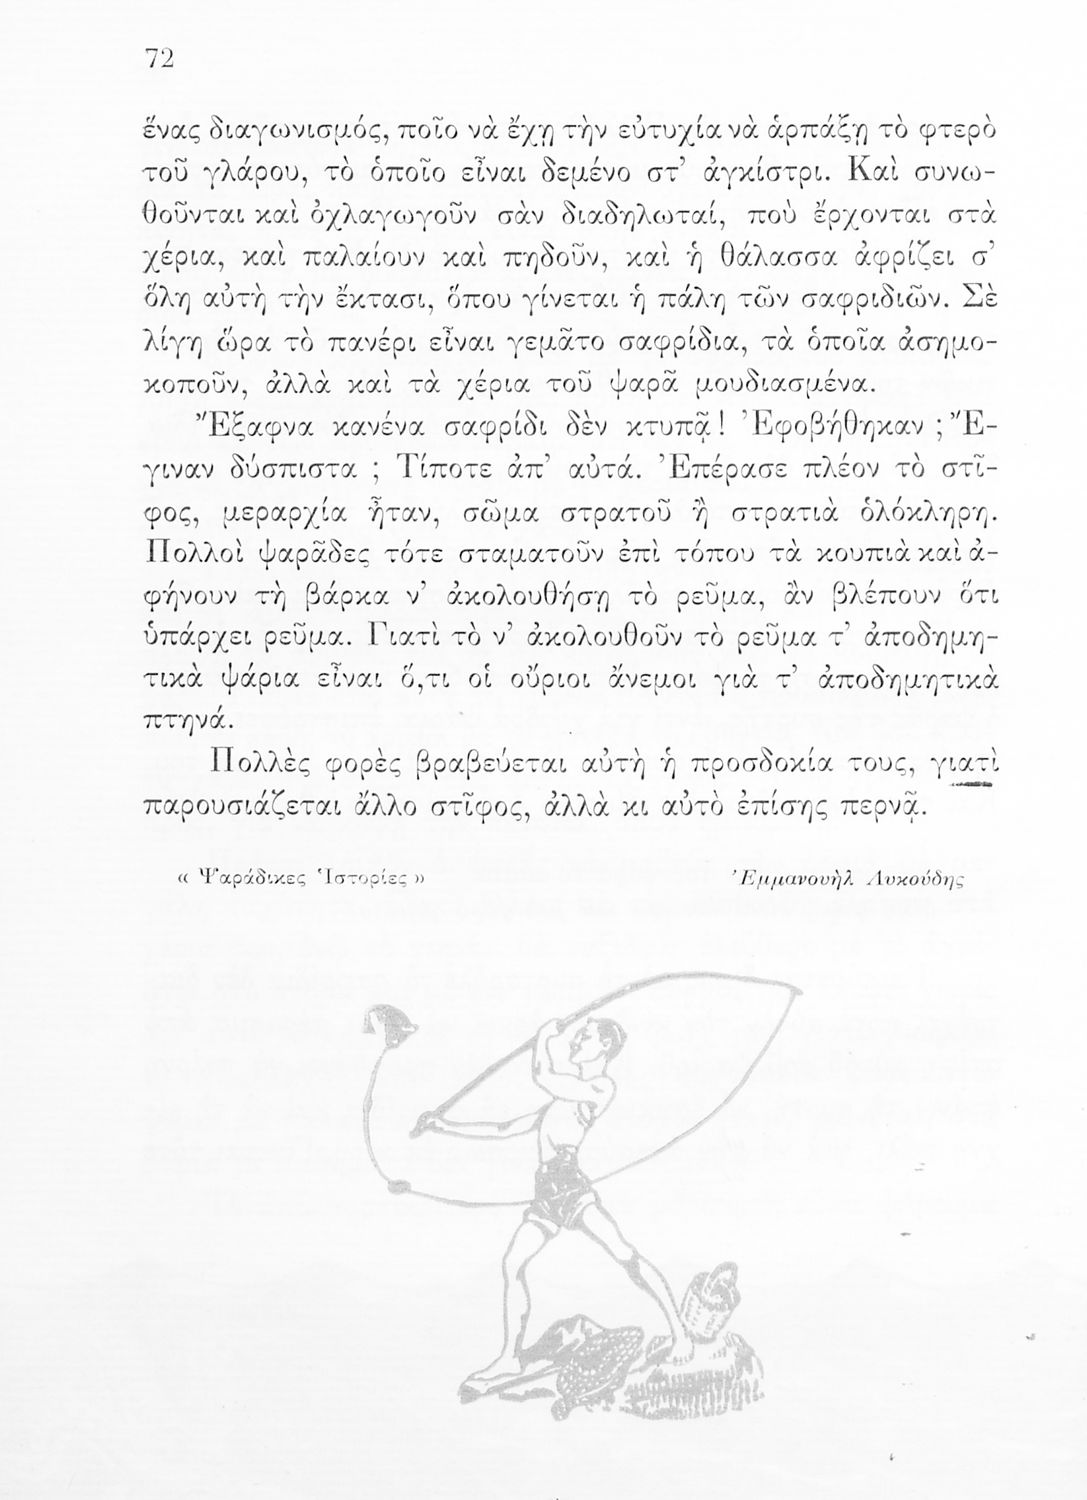 72
ἕνας διαγωνισμός, ποῖο νὰ ἔχῃ τὴν εὐτυχία νὰ ἁρπάξῃ τὸ φτερὸ
τοῦ γλάρου, τὸ ὁποῖο εἶναι δεμένο στ’ ἀγκίστρι. Καὶ συνω-
θοῦνται καὶ ὀχλαγωγοῦν σὰν διαδηλωταί, ποὺ ἔρχονται στὰ
χέρια, καὶ παλαίουν καὶ πηδοῦν, καὶ ἡ θάλασσα ἀφρίζει σ’
ὅλη αὐτὴ τὴν ἔκτασι, ὅπου γίνεται ἡ πάλη τῶν σαφριδιῶν. Σὲ
λίγη ὥρα τὸ πανέρι εἶναι γεμᾶτο σαφρίδια, τὰ ὁποῖα ἀσημο-
κοποῦν, ἀλλὰ καὶ τὰ χέρια τοῦ ψαρᾶ μουδιασμένα.
Ἔξαφνα κανένα σαφρίδι δὲν κτυπᾷ! Ἐφοβήθηκαν ; Ἔ-
γιναν δύσπιστα ; Τίποτε ἀπ’ αὐτά. Ἐπέρασε πλέον τὸ στῖ-
φος, μεραρχία ἦταν, σῶμα στρατοῦ ἢ στρατιὰ ὁλόκληρη.
Πολλοὶ ψαρᾶδες τότε σταματοῦν ἐπὶ τόπου τὰ κουπιὰ καὶ ἀ-
φήνουν τὴ βάρκα ν’ ἀκολουθήσῃ τὸ ρεῦμα, ἂν βλέπουν ὅτι
ὑπάρχει ρεῦμα. Γιατὶ τὸ ν’ ἀκολουθοῦν τὸ ρεῦμα τ’ ἀποδημη-
τικὰ ψάρια εἶναι ὅ,τι οἱ οὔριοι ἄνεμοι γιὰ τ’ ἀποδημητικὰ
πτηνά.
Πολλὲς φορὲς βραβεύεται αὐτὴ ἡ προσδοκία τους, γιατὶ
παρουσιάζεται ἄλλο στῖφος, ἀλλὰ κι αὐτὸ ἐπίσης περνᾷ.
« Ψαράδικες Ἱστορίες » Ἐμμανουὴλ Λυκούδης